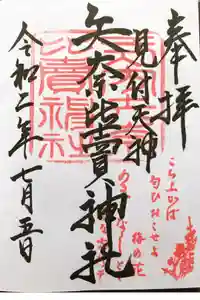 奉拝
見付天神
矢奈比賣神社
令和二年七月五日
こち吹かば
匂ひおこせよ
梅の花